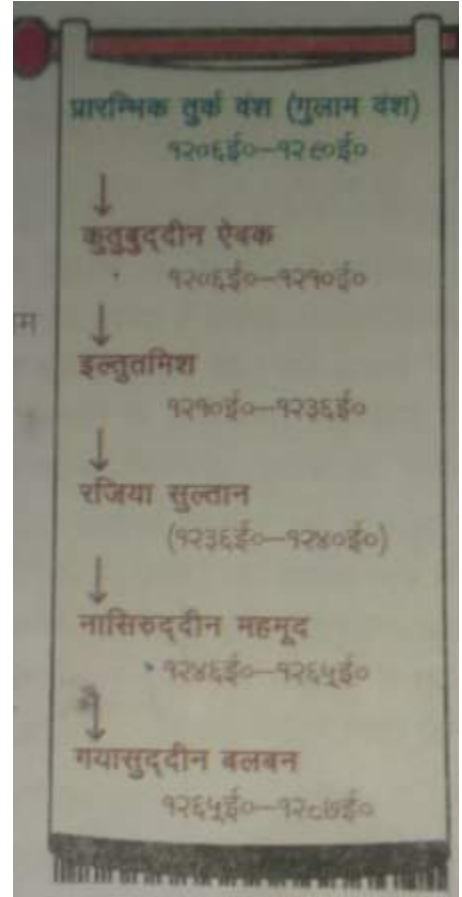 प्रारम्भिक तुर्क वंश (गुलाम वंश)
१२०६ई०—१२९०ई०
कुतुबुद्दीन ऐबक
१२०६ई०—१२१०ई०
इल्तुतमिश
१२१०ई०—१२३६ई०
रजिया सुल्तान
(१२३६ई०—१२४०ई०)
नासिरुद्दीन महमूद
१२४६ई०—१२६५ई०
गयासुद्दीन बलबन
१२६५ई०—१२८७ई०